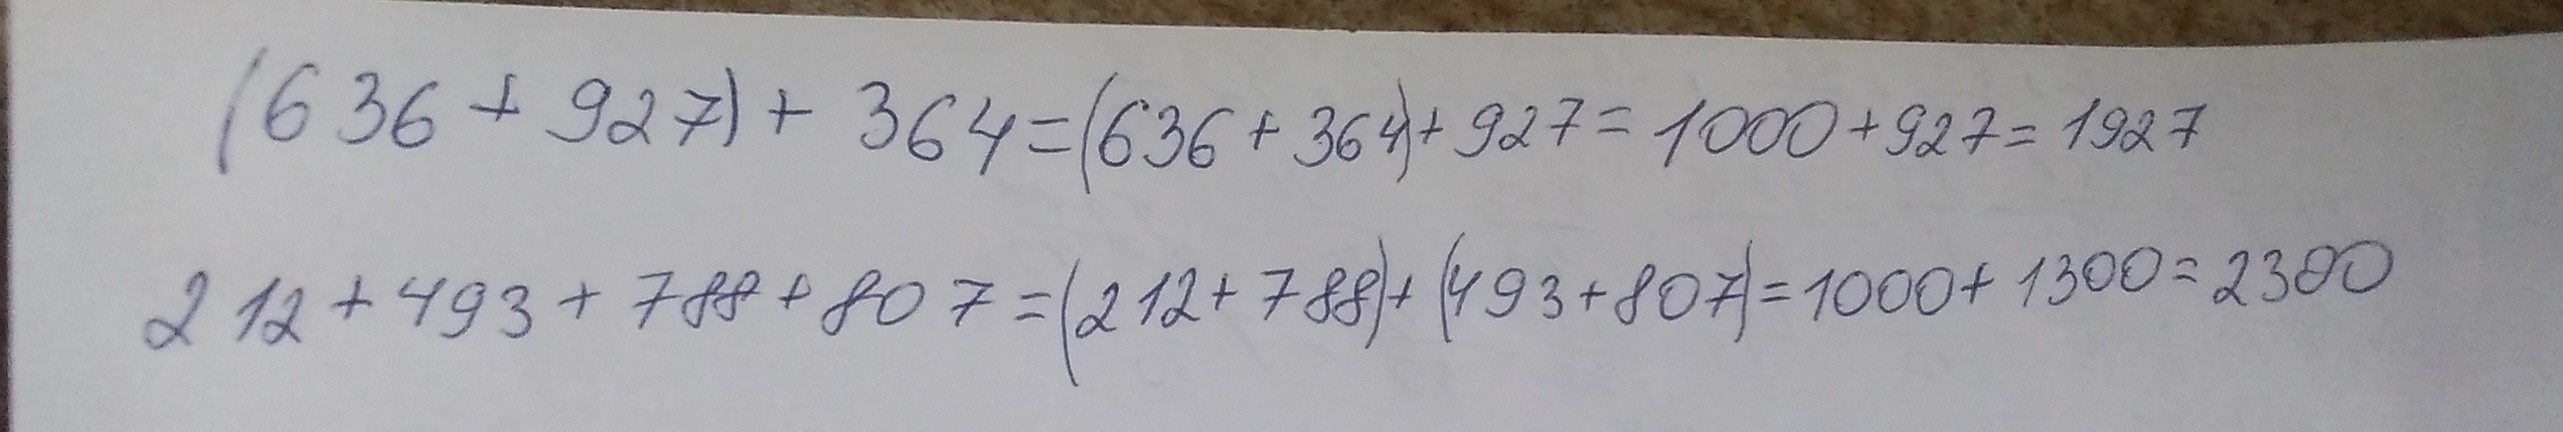 (636 + 927) + 364 = (636 + 364) + 927 = 1000 + 927 = 1927
212 + 493 + 788 + 807 = (212 + 788) + (493 + 807) = 1000 + 1300 = 2300